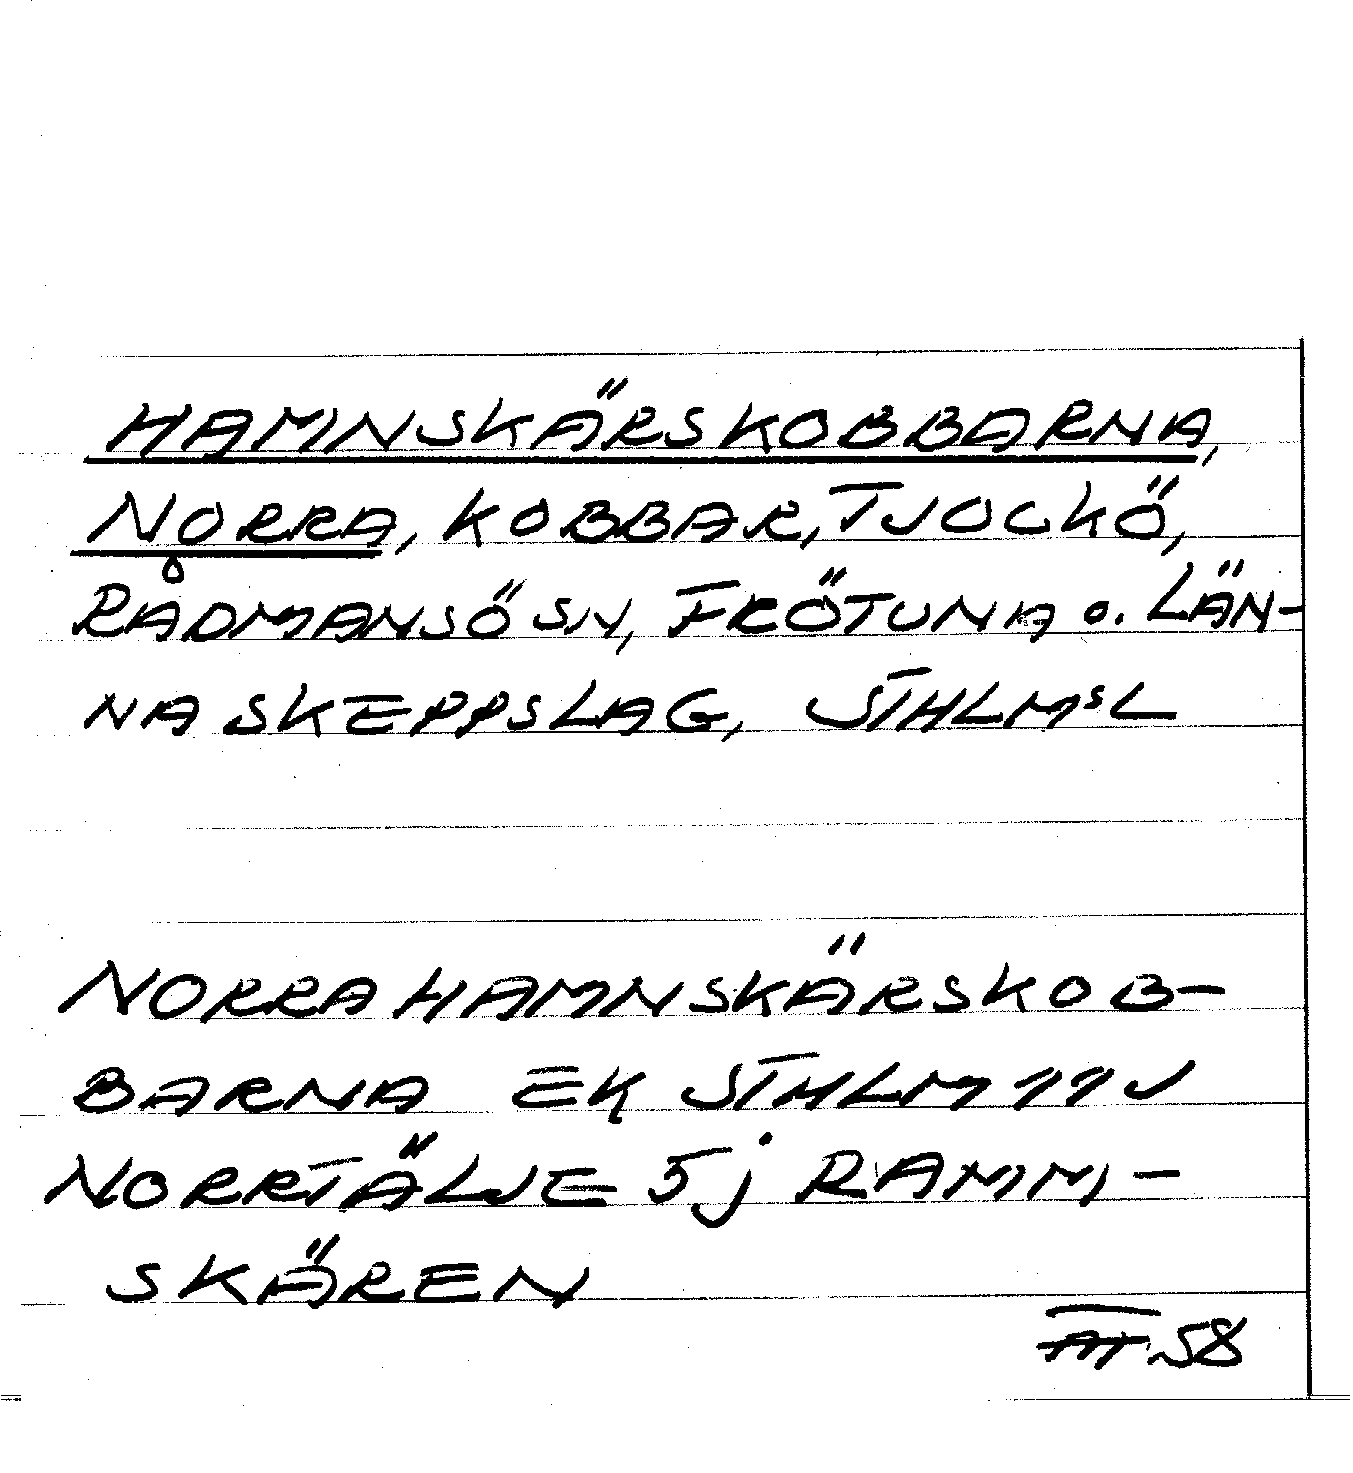 HAMNSKÄRSKOBBARNA,
NORRA, KOBBAR, TJOCKÖ,
RÅDMANSÖ SN, FRÖTUNA o. LÄN-
NA SKEPPSLAG, STHLMSL
NORRA HAMNSKÄRSKOB-
BARNA EK STHLM 11 V
NORRTÄLJE 5j RAMM-
SKÄREN
58